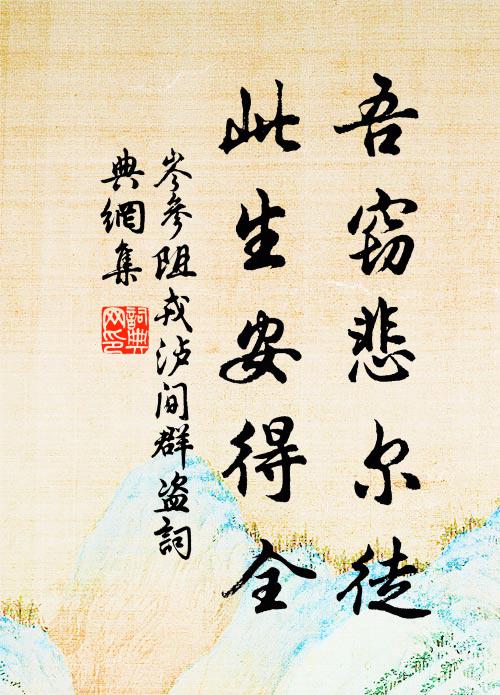 吾窃悲尔徒
此生安得全
岑参阻戎泸间群盗詞
典網集
詞典
网印